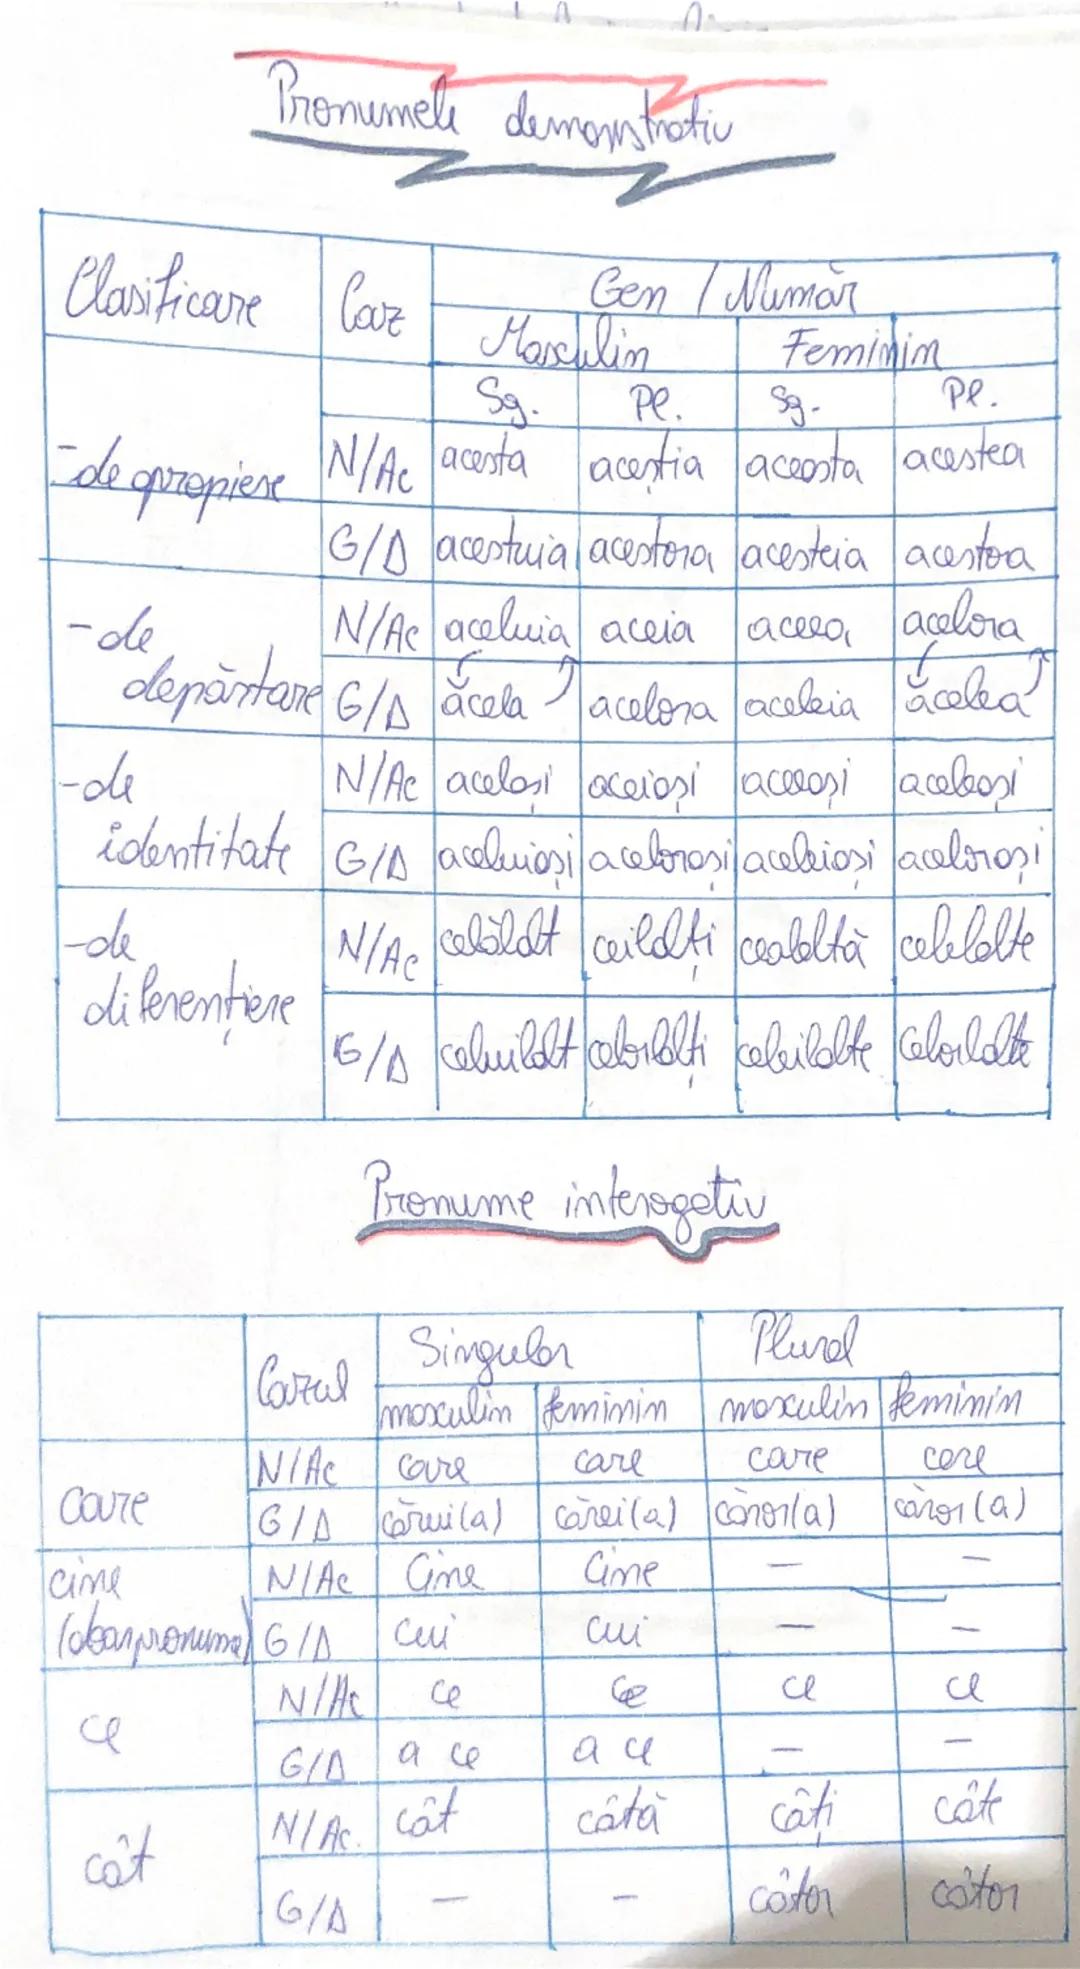 Pronumele demonstrativ
Clasificare Caz Gen / Număr
Masculin Feminin
Sg. Pl. Sg. Pl.
- de apropiere N/Ac acesta aceștia aceasta acestea
G/D acestuia acestora acesteia acestoa
- de depărtare N/Ac aceluia aceia aceea acelora
G/D ăcela acelora aceleia ăcelea
- de identitate N/Ac același aceiași aceeași aceleași
G/D aceluiași acelorași aceleiași acelorași
- de diferențiere N/Ac celălalt ceilalți cealaltă celelalte
G/D celuilalt celorlalți celeilalte celorlalte
Pronume interogativ
Cazul Singular Plural
masculin feminin masculin feminin
care N/Ac care care care care
G/D cărui(a) cărei(a) căror(a) căror(a)
cine N/Ac Cine Cine - -
(doar pronume) G/D cui cui - -
ce N/Ac ce ce ce ce
G/D a ce a ce - -
cât N/Ac. cât câtă câți câte
G/D - - câtor câtor